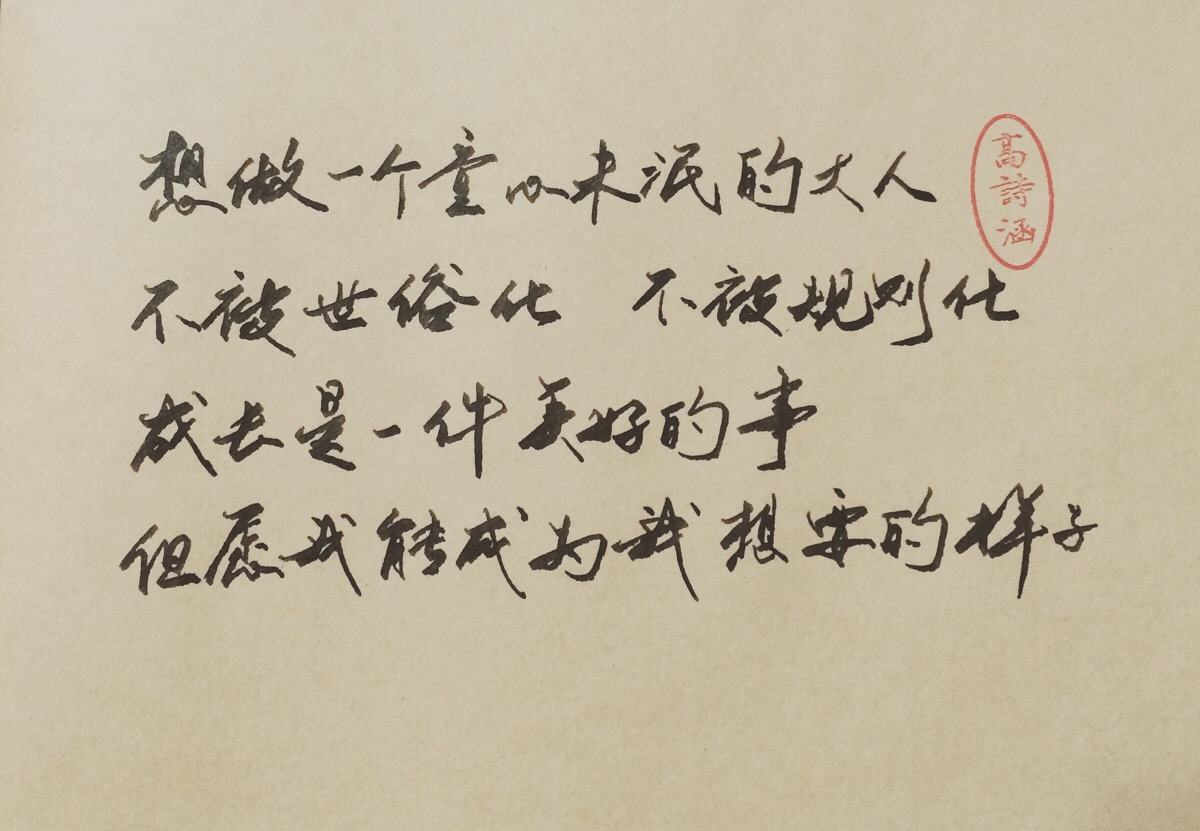 想做一个童心未泯的大人
高詩涵
不被世俗化 不被规则化
成长是一件美好的事
但愿我能成为我想要的样子